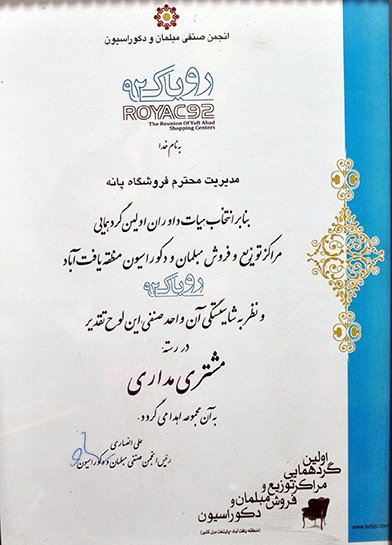 انجمن صنفی مبلمان و دکوراسیون
رویاک ۹۲
ROYAC92
The Reunion Of Yaft Abad
Shopping Centers
به نام خدا
مدیریت محترم فروشگاه پانه
بنابر انتخاب هیات داوران اولین گردهمایی
مراکز توزیع و فروش مبلمان و دکوراسیون منطقه یافت آباد
رویاک ۹۲
و نظر به شایستگی آن واحد صنفی این لوح تقدیر
در رسته:
مشتری مداری
به آن مجموعه اهدا می گردد.
علی انصاری
رئیس انجمن صنفی مبلمان و دکوراسیون
اولین
گردهمایی
مراکز توزیع و
فروش مبلمان و
دکوراسیون
(منطقه یافت آباد-پایتخت مبل کشور)